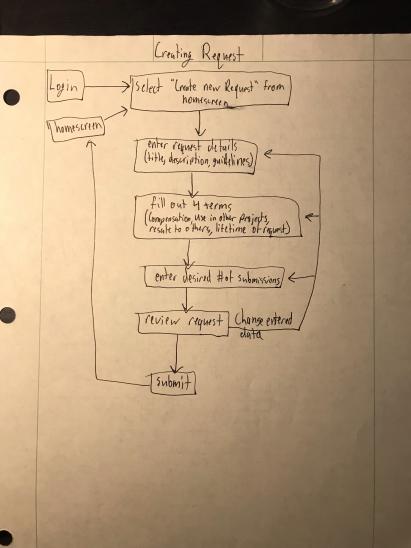 Creating Request
Login
select "Create new Request" from
homescreen
homescreen
enter request details
(title, description, guidelines)
fill out 4 terms
(compensation, use in other projects,
resale to others, lifetime of request)
enter desired # of submissions
review request
Change entered
data
submit